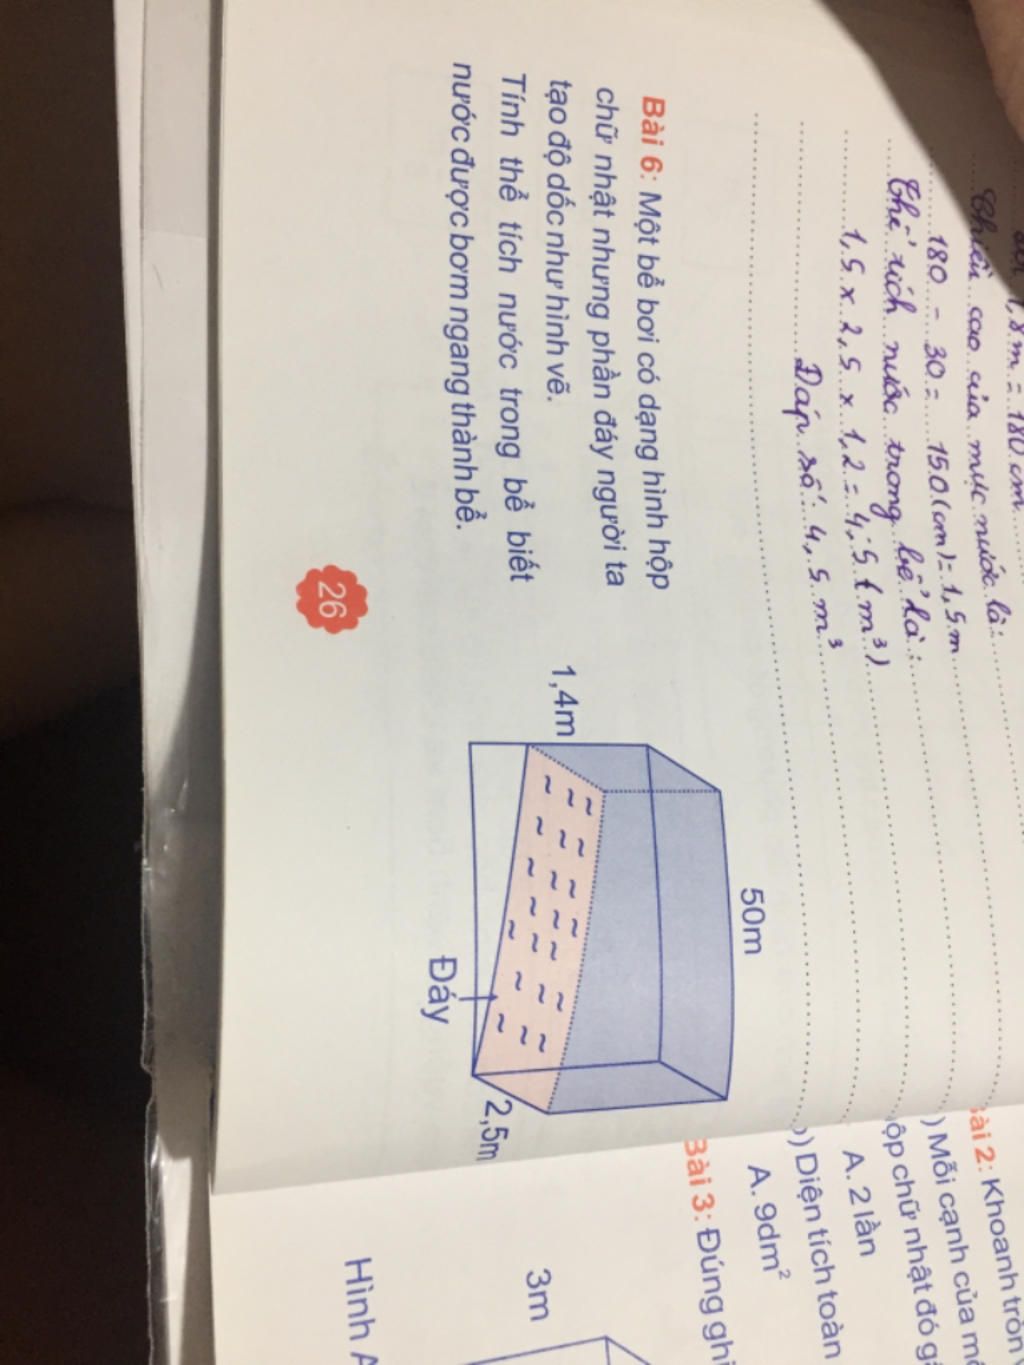 1,8m = 180 cm
Chiều cao của mực nước là:
180 - 30 = 150 (cm) = 1,5 m
Thể tích nước trong bể là:
1,5 x 2,5 x 1,2 = 4,5 (m³)
Đáp số: 4,5 m³
Bài 6: Một bể bơi có dạng hình hộp
chữ nhật nhưng phần đáy người ta
tạo độ dốc như hình vẽ.
Tính thể tích nước trong bể biết
nước được bơm ngang thành bể.
50m
1,4m
2,5m
Đáy
26
Bài 2: Khoanh tròn
) Mỗi cạnh của
hộp chữ nhật đó
A. 2 lần
b) Diện tích toàn
A. 9dm²
Bài 3: Đúng ghi
3m
Hình A